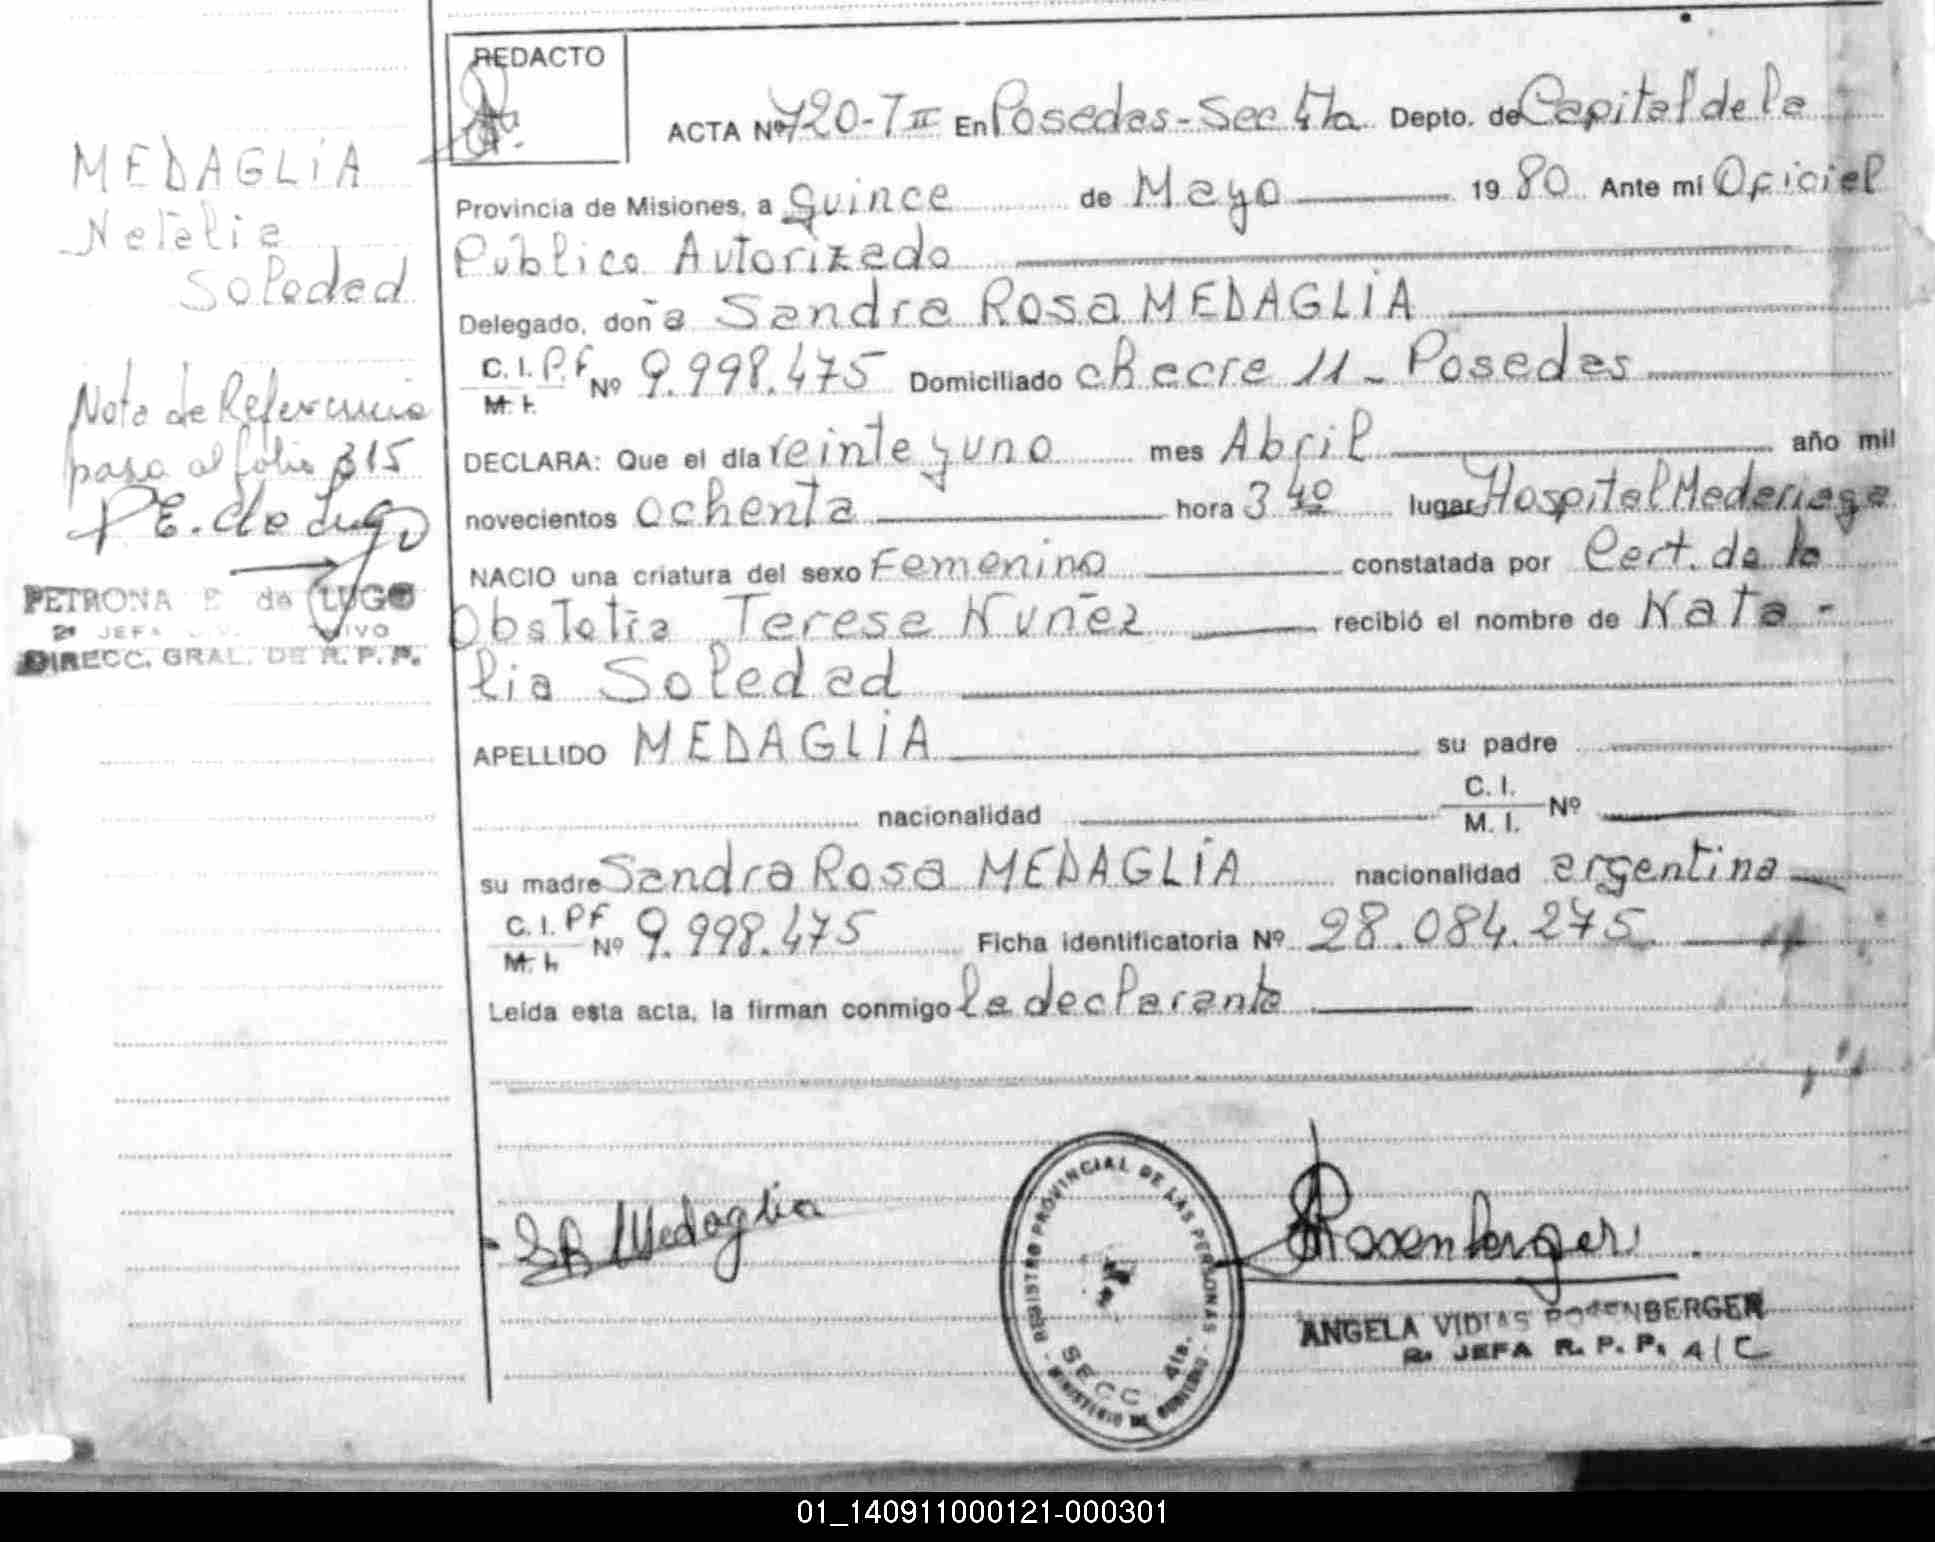 REDACTO
ACTA Nº 720-T II En Posadas-Sec 4ta Depto. de Capital de la
Provincia de Misiones, a quince de Mayo 19 80 Ante mí Oficial
Público Autorizado
Delegado, doña Sandra Rosa MEDAGLIA
C. I. P.F Nº 9.998.475 Domiciliado chacra 11 - Posadas
M. I.
DECLARA: Que el día veinte y uno mes Abril año mil
novecientos ochenta hora 3 40 lugar Hospital Madariaga
NACIO una criatura del sexo Femenino constatada por Cert. de la
Obstetia Teresa Nuñez recibió el nombre de Nata-
lia Soledad
APELLIDO MEDAGLIA su padre
nacionalidad C. I. Nº
M. I.
su madre Sandra Rosa MEDAGLIA nacionalidad argentina
C. I. PF Nº 9.998.475 Ficha identificatoria Nº 28.084.275
M. I.
Leída esta acta, la firman conmigo la declarante
MEDAGLIA
Natalia
Soledad
Nota de Referencia
pasa al folio 315
PE. de Lugo
PETRONA E de LUGO
2ª JEFA
DIRECC. GRAL. DE R. P. P.
SR Medaglia
REGISTRO PROVINCIAL DE LAS PERSONAS
SECC. 4ta.
MINISTERIO DE GOBIERNO
Rosenberger
ANGELA VIDIAS ROSENBERGER
2ª JEFA R. P. P. A/C
01_140911000121-000301